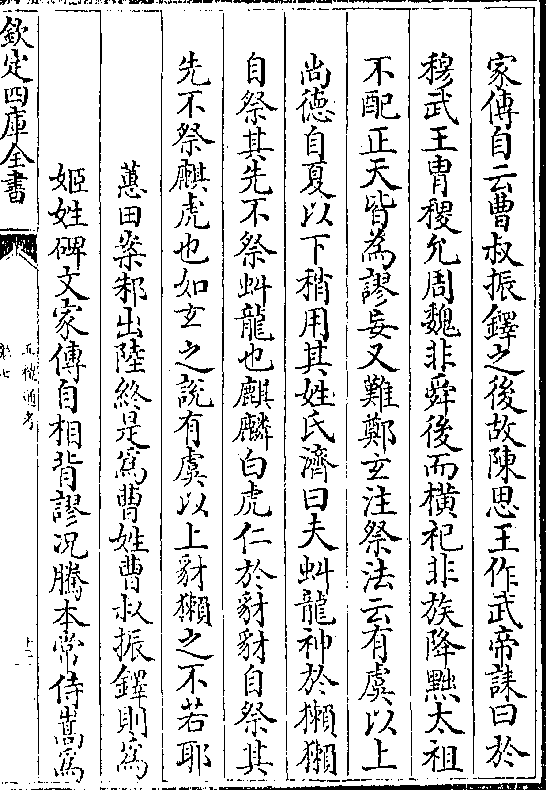 家傳自云曹叔振鐸之後故陳思王作武帝誄曰於
穆武王胄稷允周魏非舜後而橫祀非族降黜太祖
不配正天皆為謬妄又難鄭玄注祭法云有虞以上
尚德自夏以下稍用其姓氏濟曰夫虯龍神於獺獺
自祭其先不祭虯龍也麒麟白虎仁於豺豺自祭其
先不祭麒虎也如玄之說有虞以上豺獺之不若耶
蕙田案邾出陸終是爲曹姓曹叔振鐸則爲
姬姓碑文家傳自相背謬况騰本常侍嵩爲
欽定四庫全書
五禮通考